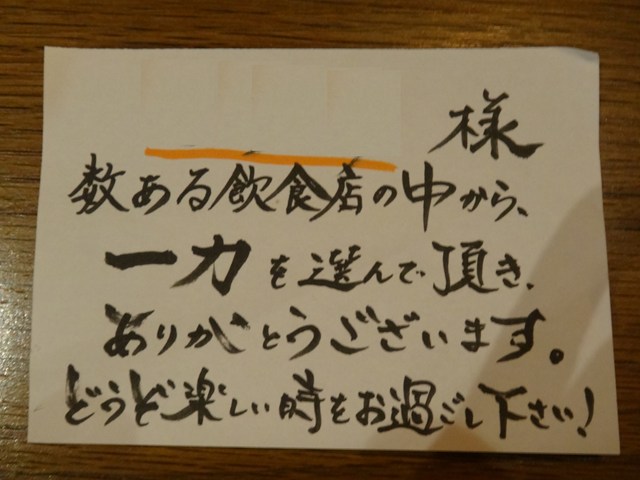 様
数ある飲食店の中から、
一力を選んで頂き、
ありがとうございます。
どうぞ楽しい時をお過ごし下さい!